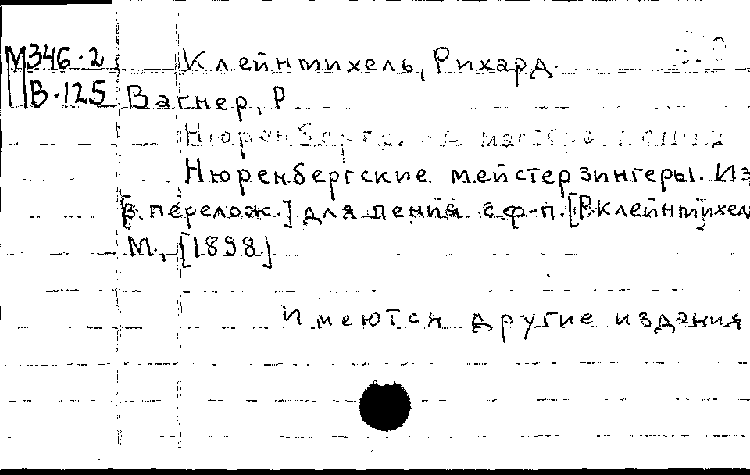 М346.2 Клейнмихель, Рихард.
В-125 Вагнер, Р
Нюренбергские мейстерзингеры. Из
[в перелож.] для пения с ф-п. [Р. Клейнмихел
М., [1898]
Имеются другие издания